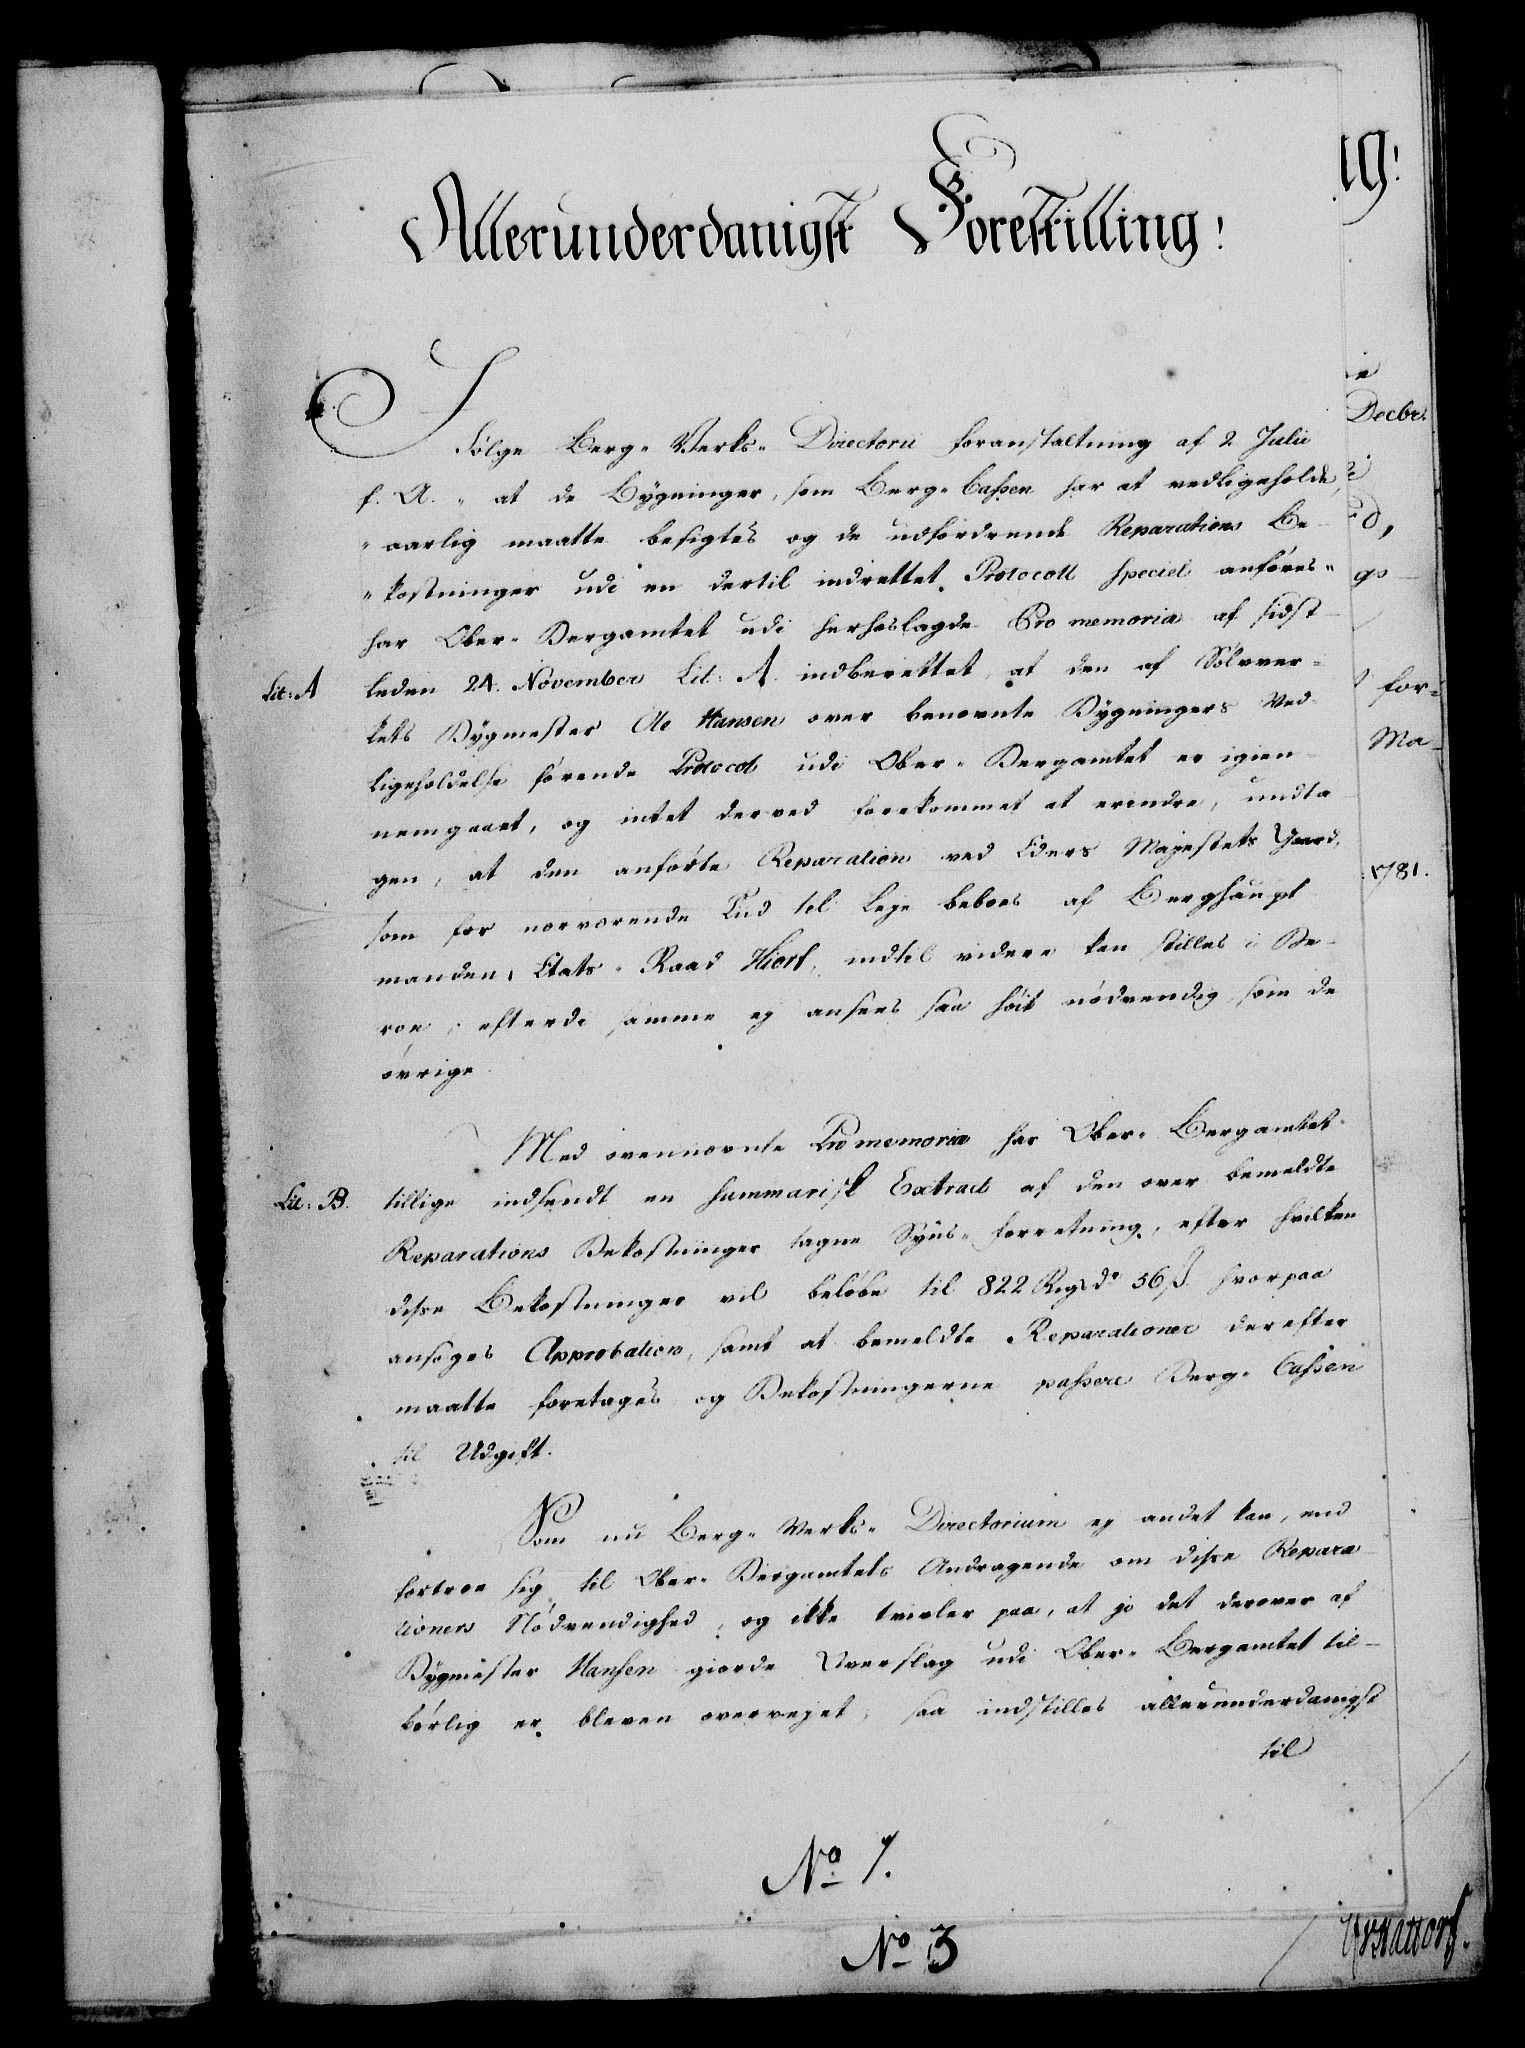 Allerunderdanigst Forestilling!
I
Følge Berg-Verks-Directorii foranstaltning af 2 Julii
f. A. " at de Bygninger, som Berg-Cassen har at vedligeholde,
" aarlig maatte besigtes og de udfordrende Reparations Be
" kostninger udi en dertil indrettet Protocoll speciel anføres"
har Ober-Bergamtet udi herhoslagde Pro memoria af sidst
Lit: A leden 24. November Lit: A. indberettet, at den af Sølvver-
kets Bygmester Ole Hansen over benævnte Bygningers Ved-
ligeholdelse førende Protocol udi Ober-Bergamtet er igien-
nemgaaet, og intet derved forekommet at erindre, undta
gen, at den anførte Reparation ved Eders Majestets Gaard,
som for nærværende Tiid til Leje beboes af Berghaupt
manden, Etats-Raad Hiort, indtil videre kan stilles i Be-
roe, efterdi samme ej ansees saa høit nødvendig som de
øvrige.
Med ovennævnte Promemoria har Ober-Bergamtet
Lit: B. tillige indsendt en summarisk Extract af den over bemeldte
Reparations Bekostninger tagne Syns-forretning, efter hvilken
disse Bekostninger vil beløbe til 822 Rigsdr 56 s. hvorpaa
ansøges Approbation, samt at bemeldte Reparationer derefter
maatte foretages og Bekostningerne passere Berg-Cassen
til Udgift.
Som nu Berg-Verks-Directorium ej andet kan, end
fortroe sig til Ober-Bergamtets Andragende om disse Repara-
tioners Nødvendighed, og ikke tvivler paa, at jo det derover af
Bygmester Hansen giorde Overslag udi Ober-Bergamtet til-
børlig er bleven overvejet, saa indstilles allerunderdanigst
til
No 7.
No 3
19!
Decbr.
gs
for=
Ma-
1781.